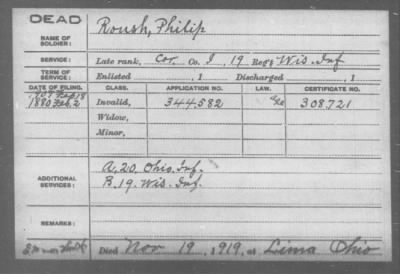 DEAD
NAME OF SOLDIER: Roush, Philip
SERVICE: Late rank, Cor. Co. I, 19 Reg't Wis. Inf
TERM OF SERVICE: Enlisted , 1 Discharged , 1
DATE OF FILING. CLASS. APPLICATION NO. LAW. CERTIFICATE NO.
1880 Feb. 2 Invalid, 344.582 308.721
Widow,
Minor,
ADDITIONAL SERVICES: A. 20. Ohio. Inf.
B. 19. Wis. Inf.
REMARKS:
Died Nov 19, 1919, at Lima Ohio